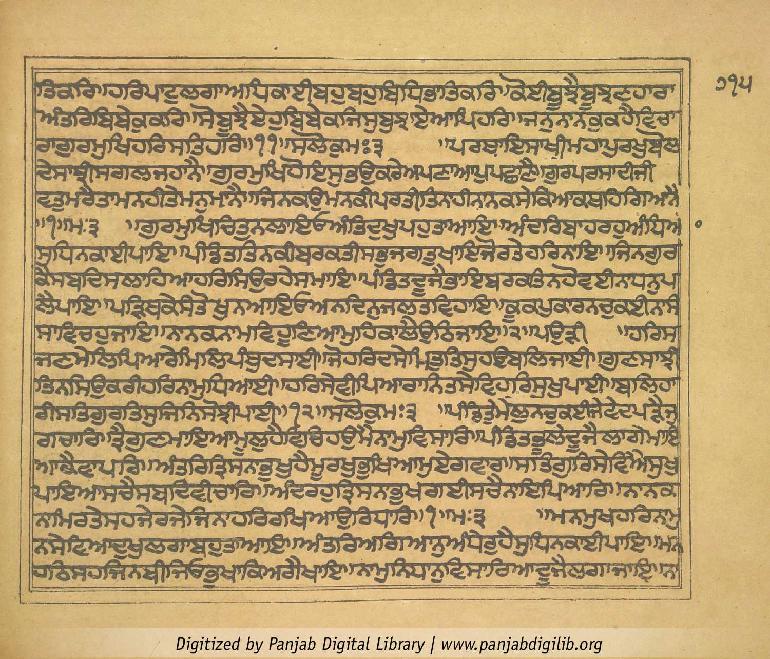 ਤਿਕਰਿ॥ਹਰਿਪਾਟੁਲਗਾਅਧਿਕਾਈਬਹੁਬਹੁਬਿਧਿਭਾਤਿਕਰਿ॥ਕੋਈਬੂਝੈਬੂਝਣਹਾਰਾ ੭੧੫
ਅੰਤਰਿਬਿਬੇਕੁਕਰਿ॥ਸੋਬੂਝੈਏਹੁਬਿਬੇਕਾਜਿਸੁਬੁਝਾਏਆਪਿਹਰਿ॥ਜਨੁਨਾਨਕੁਕਹੈਵਿਚਾ
ਰਾਗੁਰਮੁਖਿਹਰਿਸਤਿਹਰਿ॥੧੧॥ਸਲੋਕੁਮਃ੩ ॥ਪਰਥਾਇਸਾਖੀਮਹਾਪੁਰਖੁਬੋਲ
ਦੇਸਾਝੀਸਗਲਜਹਾਨੈ॥ਗੁਰਮੁਖਿਹੋਇਸੁਭਉਕਰੇਅਪਣਾਆਪੁਪਛਾਣੈ॥ਗੁਰਪਰਸਾਦੀਜੀ
ਵਤੁਮਰੈਤਾਮਨਹੀਤੇਮਨੁਮਾਨੈ॥ਜਿਨਕਉਮਨਕੀਪਰਤੀਤਿਨਹੀਨਾਨਕਸੇਕਿਆਕਥਹਿਗਿਆਨੈ
॥੧॥ਮਃ੩ ॥ਗੁਰਮੁਖਿਚਿਤੁਨਲਾਇਓਅੰਤਿਦੁਖੁਪਹੁਤਾਆਇ॥ਅੰਦਰਿਬਾਹਰਹੁਅੰਧਿਅ
ਸੁਧਿਨਕਾਈਪਾਇ॥ਪੰਡਿਤਾਤਿਨਕੀਬਰਕਤੀਸਭੁਜਗਤੁਖਾਇਜੋਰਤੇਹਰਿਨਾਇ॥ਜਿਨਗੁਰ
ਕੈਸਬਦਿਸਲਾਹਿਆਹਰਿਸਿਉਰਹੇਸਮਾਇ॥ਪੰਡਿਤਦੂਜੈਭਾਇਬਰਕਤਿਨਹੋਵਈਨਧਨੁਪ
ਲੈਪਾਇ॥ਪੜਿਥਕੇਸੰਤੋਖੁਨਆਇਓਅਨਦਿਨੁਜਲਤਵਿਹਾਇ॥ਕੂਕਪੁਕਾਰਨਚੁਕਈਨਸੰ
ਸਾਵਿਚਹੁਜਾਇ॥ਨਾਨਕਨਾਮਵਿਹੂਣਿਆਮੁਹਿਕਾਲੈਉਠਿਜਾਇ॥੨॥ਪਉੜੀ ॥ਹਰਿਸ
ਜਣਮੇਲਿਪਿਆਰੇਮਿਲਿਪੰਥੁਦਸਾਈ॥ਜੋਹਰਿਦਸੇਮਿਤੁਤਿਸੁਹਉਬਲਿਜਾਈ॥ਗੁਣਸਾਝੀ
ਤਿਨਸਿਉਕਰੀਹਰਿਨਾਮੁਧਿਆਈ॥ਹਰਿਸੇਵੀਪਿਆਰਾਨਿਤਸੇਵਿਹਰਿਸੁਖੁਪਾਈ॥ਬਲਿਹਾ
ਰੀਸਤਿਗੁਰਤਿਸੁਜਿਨਿਸੋਝੀਪਾਈ॥੧੨॥ਸਲੋਕੁਮਃ੩ ॥ਪੰਡਿਤੁਮੈਲੁਨਚੁਕਈਜੇਵੇਦਪੜੈਜੁ
ਗਚਾਰਿ॥ਤ੍ਰੈਗੁਣਮਾਇਆਮੂਲੁਹੈਵਿਚਿਹਉਮੈਨਾਮੁਵਿਸਾਰਿ॥ਪੰਡਿਤਭੂਲੇਦੂਜੈਲਾਗੇਮਾਇ
ਆਕੈਵਾਪਾਰਿ॥ਅੰਤਰਿਤ੍ਰਿਸਨਭੁਖਹੈਮੂਰਖਭੁਖਿਆਮੁਏਗਵਾਰ॥ਸਤਿਗੁਰਿਸੇਵਿਐਸੁਖੁ
ਪਾਇਆਸਚੈਸਬਦਿਵੀਚਾਰਿ॥ਅੰਦਰਹੁਤ੍ਰਿਸਨਭੁਖਗਈਸਚੈਨਾਇਪਿਆਰਿ॥ਨਾਨਕ
ਨਾਮਿਰਤੇਸਹਜੇਰਜੇਜਿਨਾਹਰਿਰਖਿਆਉਰਿਧਾਰਿ॥੧॥ਮਃ੩ ॥ਮਨਮੁਖਹਰਿਨਾਮੁ
ਨਸੇਵਿਆਦੁਖੁਲਗਾਬਹੁਤਾਆਇ॥ਅੰਤਰਿਅਗਿਆਨੁਅੰਧੇਰੁਹੈਸੁਧਿਨਕਾਈਪਾਇ॥ਮਨ
ਹਠਿਸਹਜਿਨਬੀਜਿਓਭੁਖਾਕਿਅਗੈਖਾਇ॥ਨਾਮੁਨਿਧਾਨੁਵਿਸਾਰਿਆਦੂਜੈਲਗਾਜਾਇ॥ਨ
Digitized by Panjab Digital Library | www.panjabdigilib.org